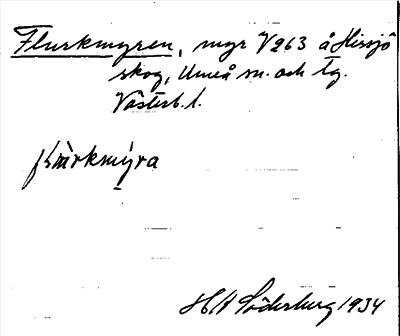 Flurkmyren, myr V263 å Hissjö
skog, Umeå sn. och tg.
Västerb. l.
H A Söderberg 1934